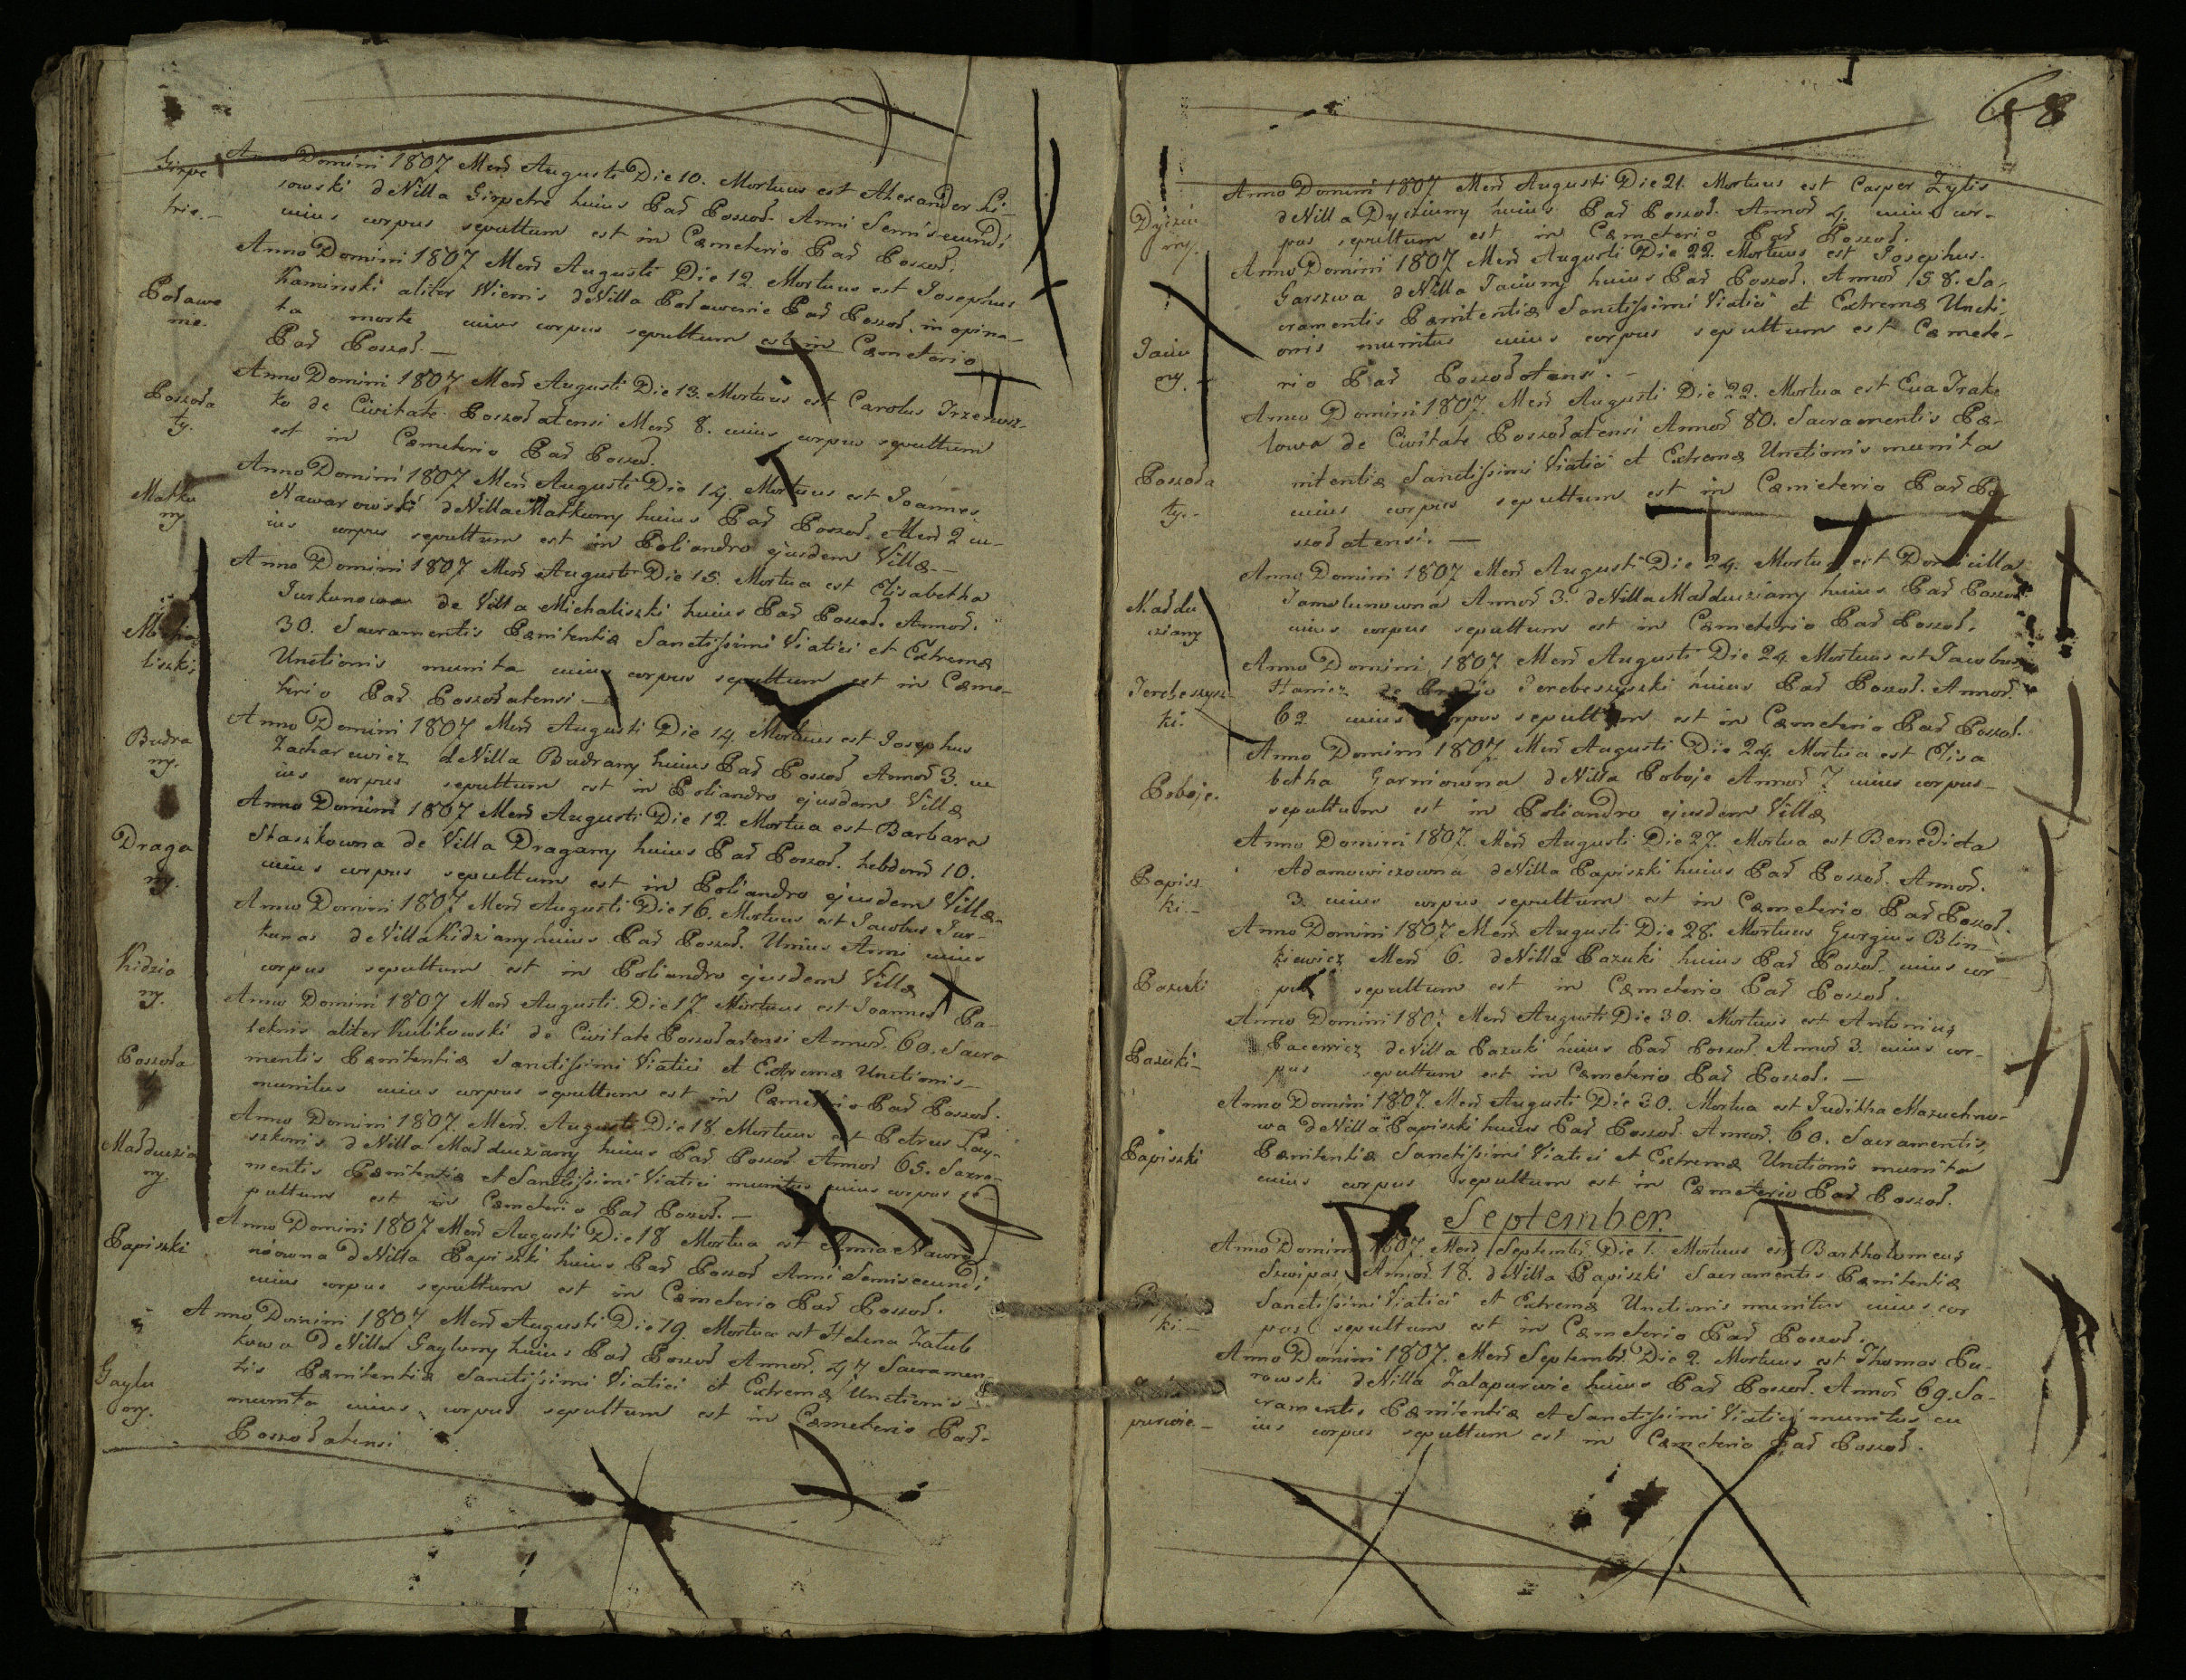 Girpe
trie.-
Anno Domini 1807 Mens Augusti Die 10. Mortuus est Alexander Li-
sowski de Villa Girpetrie huius Par Poszoł. Anni Semisecundi
cuius corpus sepultum est in Cæmeterio Par Poszoł.
Poławe
nie.
Anno Domini 1807 Mens Augusti Die 12. Mortuus est Josephus
Kaminski aliter Wiernis de Villa Poławenie Par Poszoł. in opina-
ta morte cuius corpus sepultum est in Cæmeterio
Par Poszoł. —
Poszoła
ty.
Anno Domini 1807 Mens Augusti Die 13. Mortuus est Carolus
ko de Civitate Poszołatensi Mens 8. cuius corpus sepultum
est in Cæmeterio Par Poszoł.
Matku
ny
Anno Domini 1807 Mens Augusti Die 14. Mortuus est Joannes
Nawarowski de Villa Matkuny huius Par Poszoł. Mens 2 cu-
ius corpus sepultum est in Poliandro ejusdem Villæ.-
liszki
Anno Domini 1807 Mens Augusti Die 15. Mortua est Elisabetha
Turkunowa de Villa Michaliszki huius Par Poszoł. Annor.
30. Sacramentis Pænitentiæ Sanctissimi Viatici et Extremæ
Unctionis munita cuius corpus sepultum est in Cæme-
terio Par Poszołatensi —
Budra
ny.
Anno Domini 1807 Mens Augusti Die 14 Mortuus est Josephus
Zacharewicz de Villa Budrany huius Par Poszoł Annor 3. cu
ius corpus sepultum est in Poliandro ejusdem Villæ
Draga
ny.
Anno Domini 1807 Mens Augusti Die 12. Mortua est Barbara
Staszkowna de Villa Dragany huius Par Poszoł. hebdom 10.
cuius corpus sepultum est in Poliandro ejusdem Villæ-
Kidzia
ny.
Anno Domini 1807 Mens Augusti Die 16. Mortuus est Jacobus Tur-
kunas de Villa Kidziany huius Par Poszoł. Unius Anni cuius
corpus sepultum est in Poliandro ejusdem Villæ
Poszoła
Anno Domini 1807 Mens Augusti Die 17. Mortuus est Joannes Pa-
teknis aliter Kulikowski de Civitate Poszołatensi Annor. 60. Sacra
mentis Pænitentiæ Sanctissimi Viatici et Extremæ Unctionis
munitus cuius corpus sepultum est in Cæmeterio Par Poszoł.
Małduzia
ny
Anno Domini 1807 Mens. Augusti Die 18. Mortuus est Petrus Lay-
szkonis de Villa Małduziany huius Par Poszoł Annor 65. Sacra-
mentis Pænitentiæ et Sanctissimi Viatici munitus cuius corpus se-
pultum est in Cæmeterio Par Poszoł. —
Papiszki
Anno Domini 1807 Mens Augusti Die 18 Mortua est Anna
nowna de Villa Papiszki huius Par Poszoł Anni Semisecundi
cuius corpus sepultum est in Cæmeterio Par Poszoł.
Gaylu
ny.
Anno Domini 1807 Mens Augusti Die 19. Mortua est Helena Zatub
kowa de Villa Gayluny huius Par Poszoł Annor. 47 Sacramen
tis Pænitentiæ Sanctissimi Viatici et Extremæ Unctionis
munita cuius corpus sepultum est in Cæmeterio Par-
Poszołatensi
68
Dyrziu
ny.
Anno Domini 1807 Mens Augusti Die 21. Mortuus est Casper Zylis
de Villa Dyrziuny huius Par Poszoł. Annor 4. cuius cor-
pus sepultum est in Cæmeterio Par Poszoł.
Jaciu
ny.
Anno Domini 1807 Mens Augusti Die 22. Mortuus est Josephus
Garszwa de Villa Jaciuny huius Par Poszoł. Annor 58. Sa-
cramentis Pænitentiæ Sanctissimi Viatici et Extremæ Uncti-
onis munitus cuius corpus sepultum est Cæmete-
rio Par Poszołatensi. -
Poszoła
ty.-
Anno Domini 1807. Mens Augusti Die 22. Mortua est Eva Trako
lowa de Civitate Poszołatensi Annor 80. Sacramentis Pæ-
nitentiæ Sanctissimi Viatici et Extremæ Unctionis munita
cuius corpus sepultum est in Cæmeterio Par Po-
szołatensi. —
Małdu
ziany
Anno Domini 1807 Mens Augusti Die 24. Mortua est Domicilla
Jamolunowna Annor 3. de Villa Małduziany huius Par Poszoł.
cuius corpus sepultum est in Cæmeterio Par Poszoł.
Terebeszysz-
ki.
Anno Domini 1807 Mens Augusti Die 24. Mortuus est Jacobus
Haniez de Prædio Terebeszyszki huius Par Poszoł. Annor.
62 cuius corpus sepultum est in Cæmeterio Par Poszoł.
Poboje.
Anno Domini 1807 Mens Augusti Die 24. Mortua est Elisa
betha Garniowna de Villa Poboje Annor 7 cuius corpus
sepultum est in Poliandro ejusdem Villæ
Papisz
ki.-
Anno Domini 1807. Mens Augusti Die 27. Mortua est Benedicta
Adamowiczowna de Villa Papiszki huius Par Poszoł. Annor.
3. cuius corpus sepultum est in Cæmeterio Par Poszoł.
Pazuki
Anno Domini 1807 Mens Augusti Die 28. Mortuus Gurgius Blin-
kiewicz Mens 6. de Villa Pazuki huius Par Poszoł. cuius cor-
pus sepultum est in Cæmeterio Par Poszoł.
Pazuki-
Anno Domini 1807 Mens Augusti Die 30. Mortuus est Antonius
Pacewicz de Villa Pazuki huius Par Poszoł. Annor 3. cuius cor-
pus sepultum est in Cæmeterio Par Poszoł. —
Papiszki
Anno Domini 1807. Mens Augusti Die 30. Mortua est Juditha Mazuchno-
wa de Villa Papiszki huius Par Poszoł. Annor. 60. Sacramentis
Pænitentiæ Sanctissimi Viatici et Extremæ Unctionis munita
cuius corpus sepultum est in Cæmeterio Par Poszoł.
September.
ki.-
Anno Domini 1807. Mens Septembr Die 1. Mortuus est Bartholomeus
Szwipas Annor. 18. de Villa Papiszki Sacramentis Pænitentiæ
Sanctissimi Viatici et Extremæ Unctionis munitus cuius cor
pus sepultum est in Cæmeterio Par Poszoł.
purwie.-
Anno Domini 1807. Mens Septembr. Die 2. Mortuus est Thomas Pu-
rowski de Villa Zalapurwie huius Par Poszoł. Annor 69. Sa-
cramentis Pænitentiæ et Sanctissimi Viatici munitus cu
ius corpus sepultum est in Cæmeterio Par Poszoł.